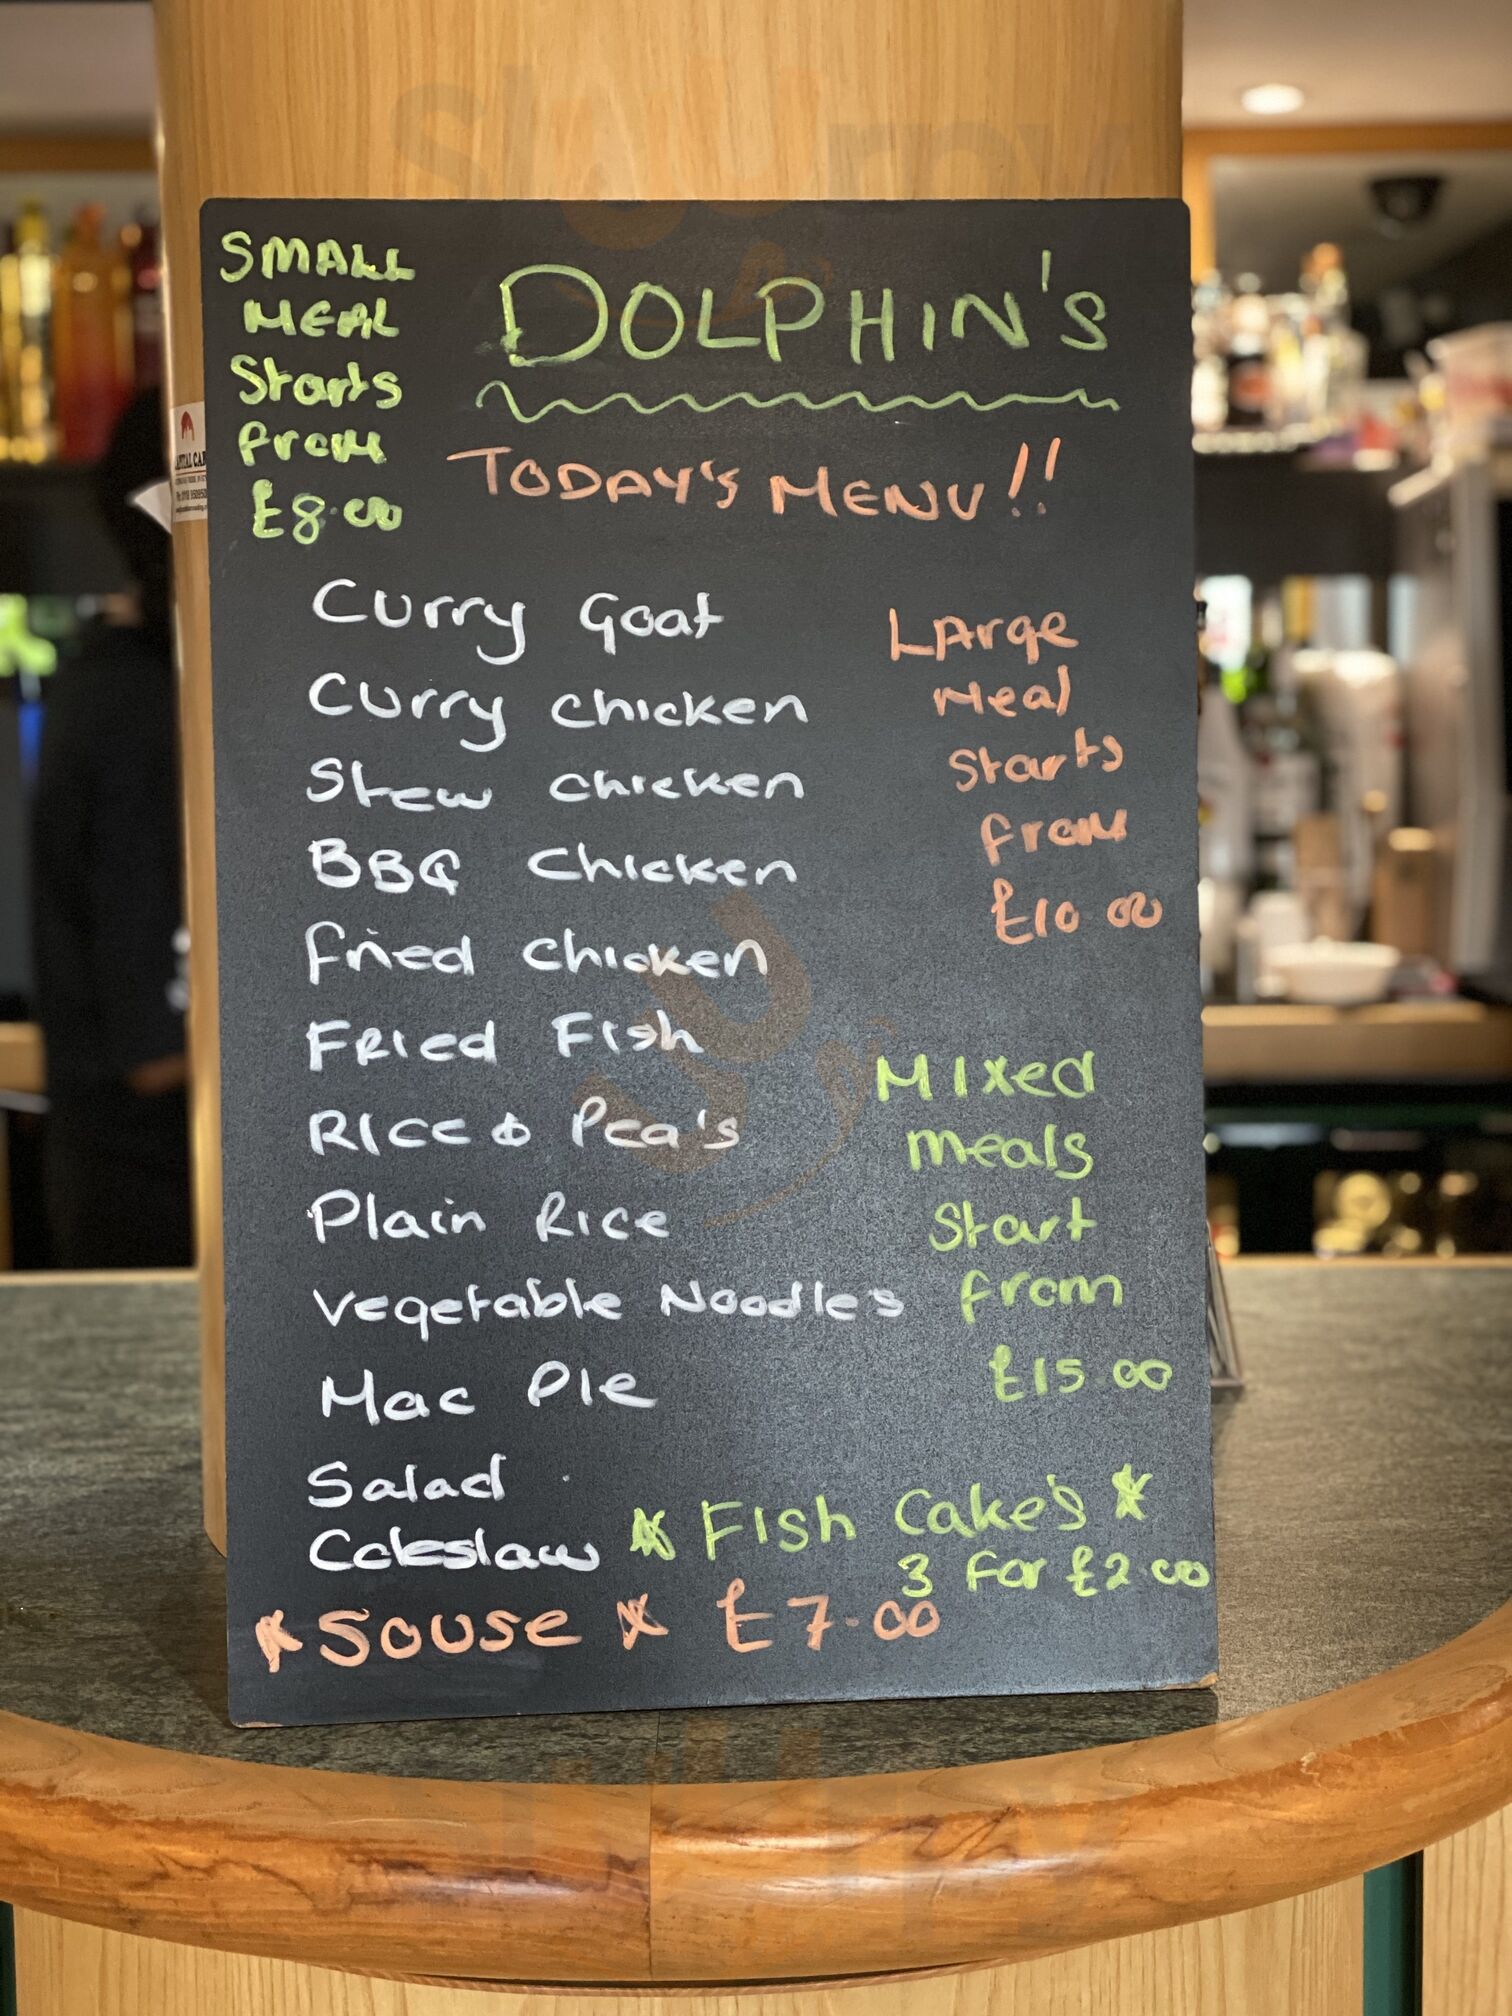 SMALL
MEAL
Starts
from
£8.00
DOLPHIN'S
TODAY'S MENU!!
Curry Goat
Curry Chicken
Stew Chicken
BBQ Chicken
Fried Chicken
FRied Fish
Rice & Pea's
Plain Rice
Vegetable Noodles
Mac Pie
Salad
Coleslaw
LArge
Meal
Starts
from
£10.00
Mixed
meals
Start
from
£15.00
* Fish Cake's *
3 For £2.00
* Souse * £7.00